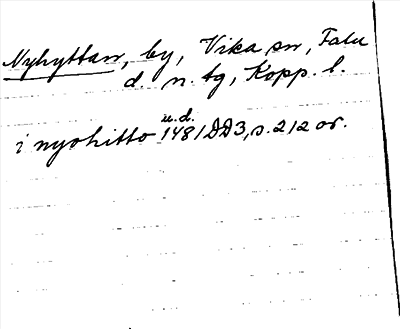 Nyhyttan, by, Vika sn, Falu
d. n. tg, Kopp. l.
u.d.
i nyohitto 1481 DD3, s. 212 or.